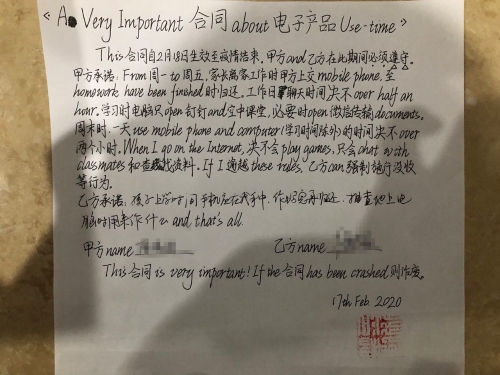 《A Very Important 合同 about 电子产品 Use-time》
This 合同自2月18日生效至疫情结束。甲方and乙方在此期间必须遵守。
甲方承诺: From 周一 to 周五, 家长离家工作时甲方上交 mobile phone, 至
homework have been finished 时归还。工作日聊天时间决不 over half an
hour. 学习时电脑只 open 钉钉 and 空中课堂, 必要时 open 微信传输 documents.
周末时, 一天 use mobile phone and computer (学习时间除外) 的时间决不 over
两个小时. When I go on the Internet, 决不会 play games. 只会 chat with
classmates 和查找资料. If I 逾越 these rules, 乙方 can 强制施行没收
等行为.
乙方承诺: 孩子上学时间手机在我手中, 作业完再归还. 抽查他上电
脑时用来作什么 and that's all.
甲方 name 乙方 name
This 合同 is very important! If the 合同 has been crashed 则作废.
17th Feb. 2020